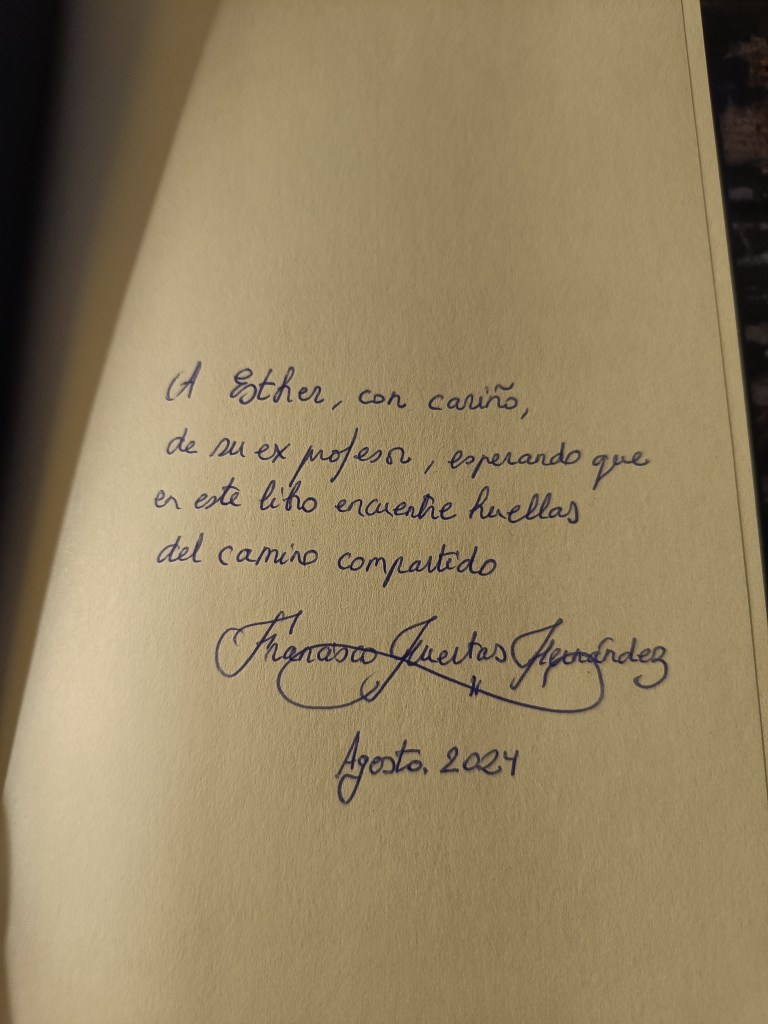 A Esther, con cariño,
de su ex profesor, esperando que
en este libro encuentre huellas
del camino compartido
Francisco Huertas Hernández
Agosto. 2024